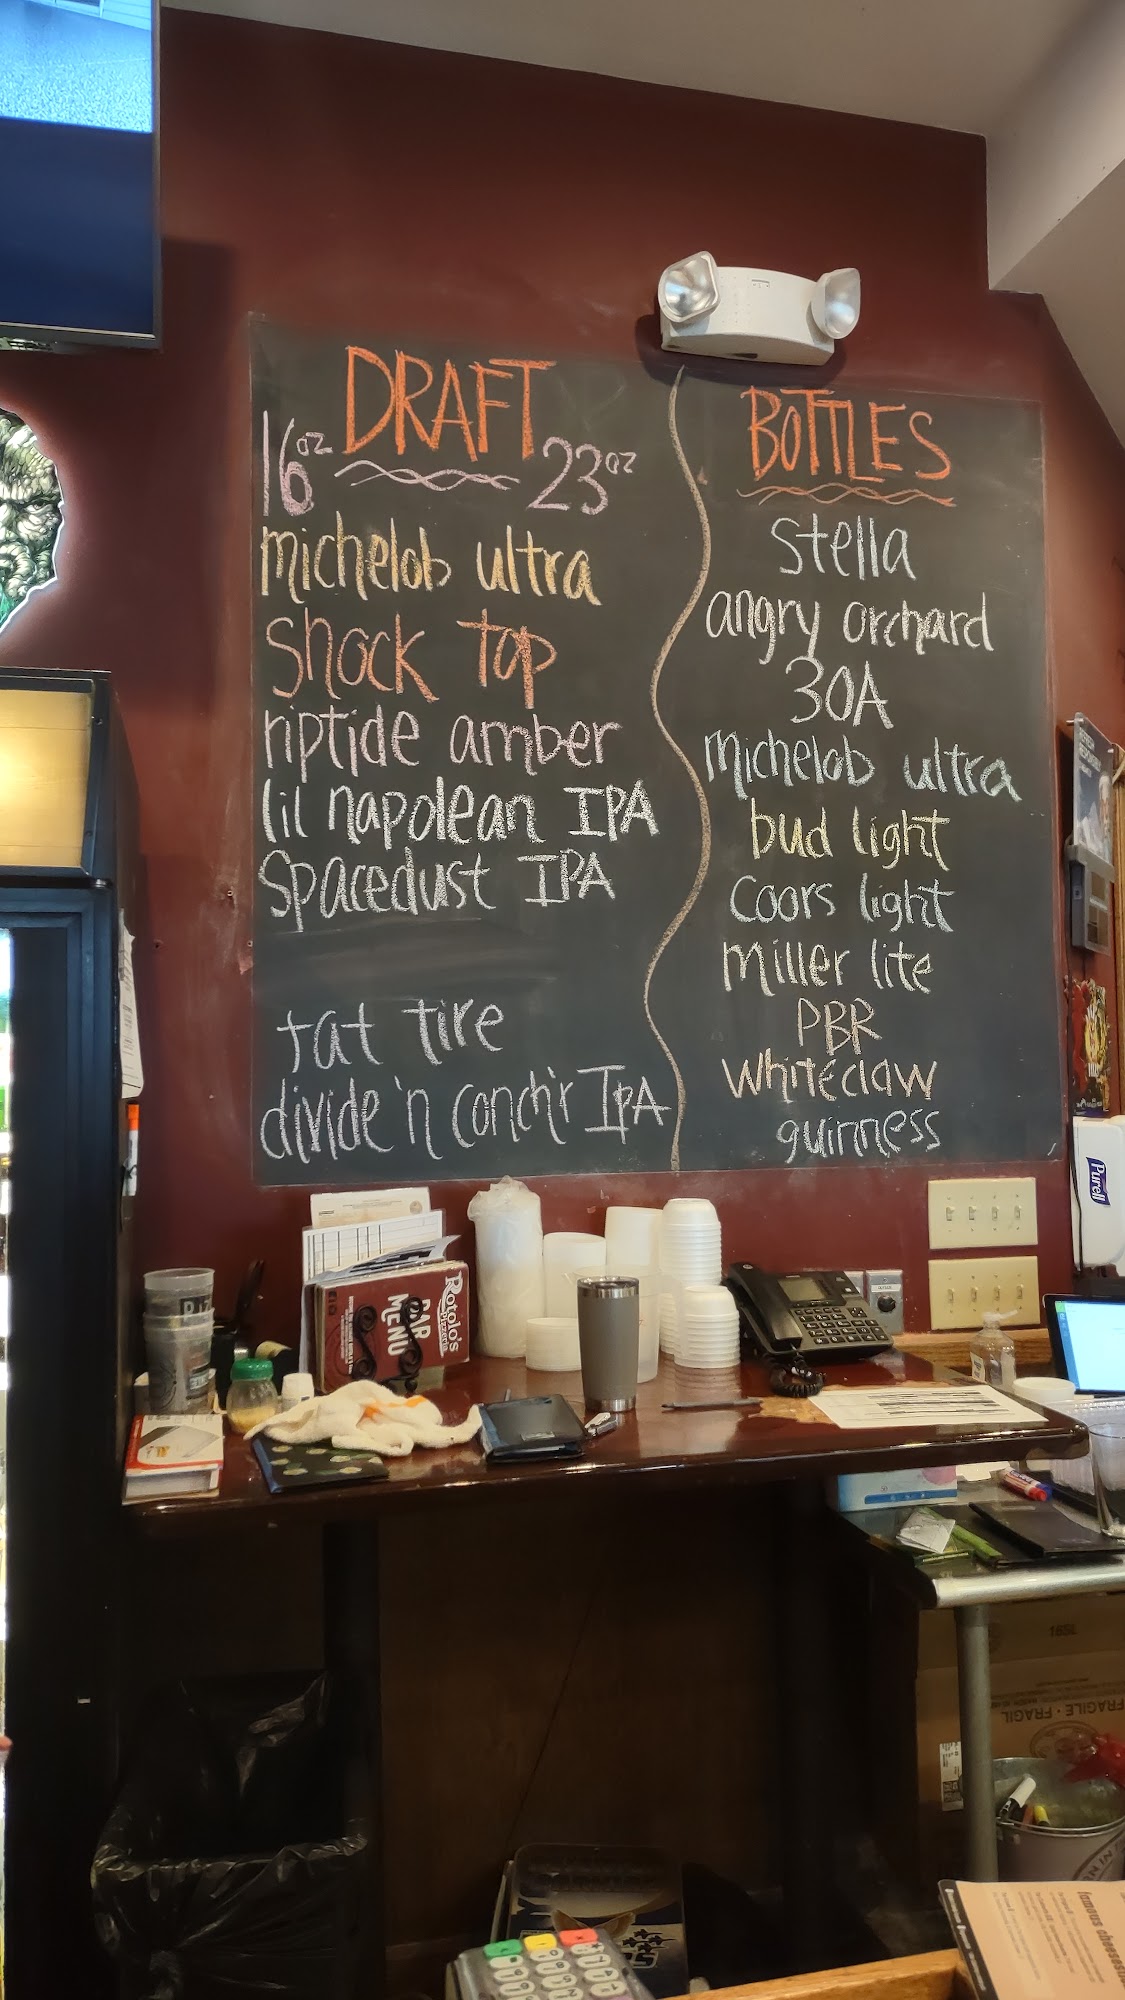 DRAFT
16oz 23oz
michelob ultra
shock top
riptide amber
lil napolean IPA
Spacedust IPA
fat tire
divide 'n conch'r IPA
BOTTLES
stella
angry orchard
30A
michelob ultra
bud light
coors light
miller lite
PBR
whiteclaw
guinness
Rotolo's
Pizzeria
BAR
MENU
Purell
FRAGILE · FRAGIL
famous cheesesteaks